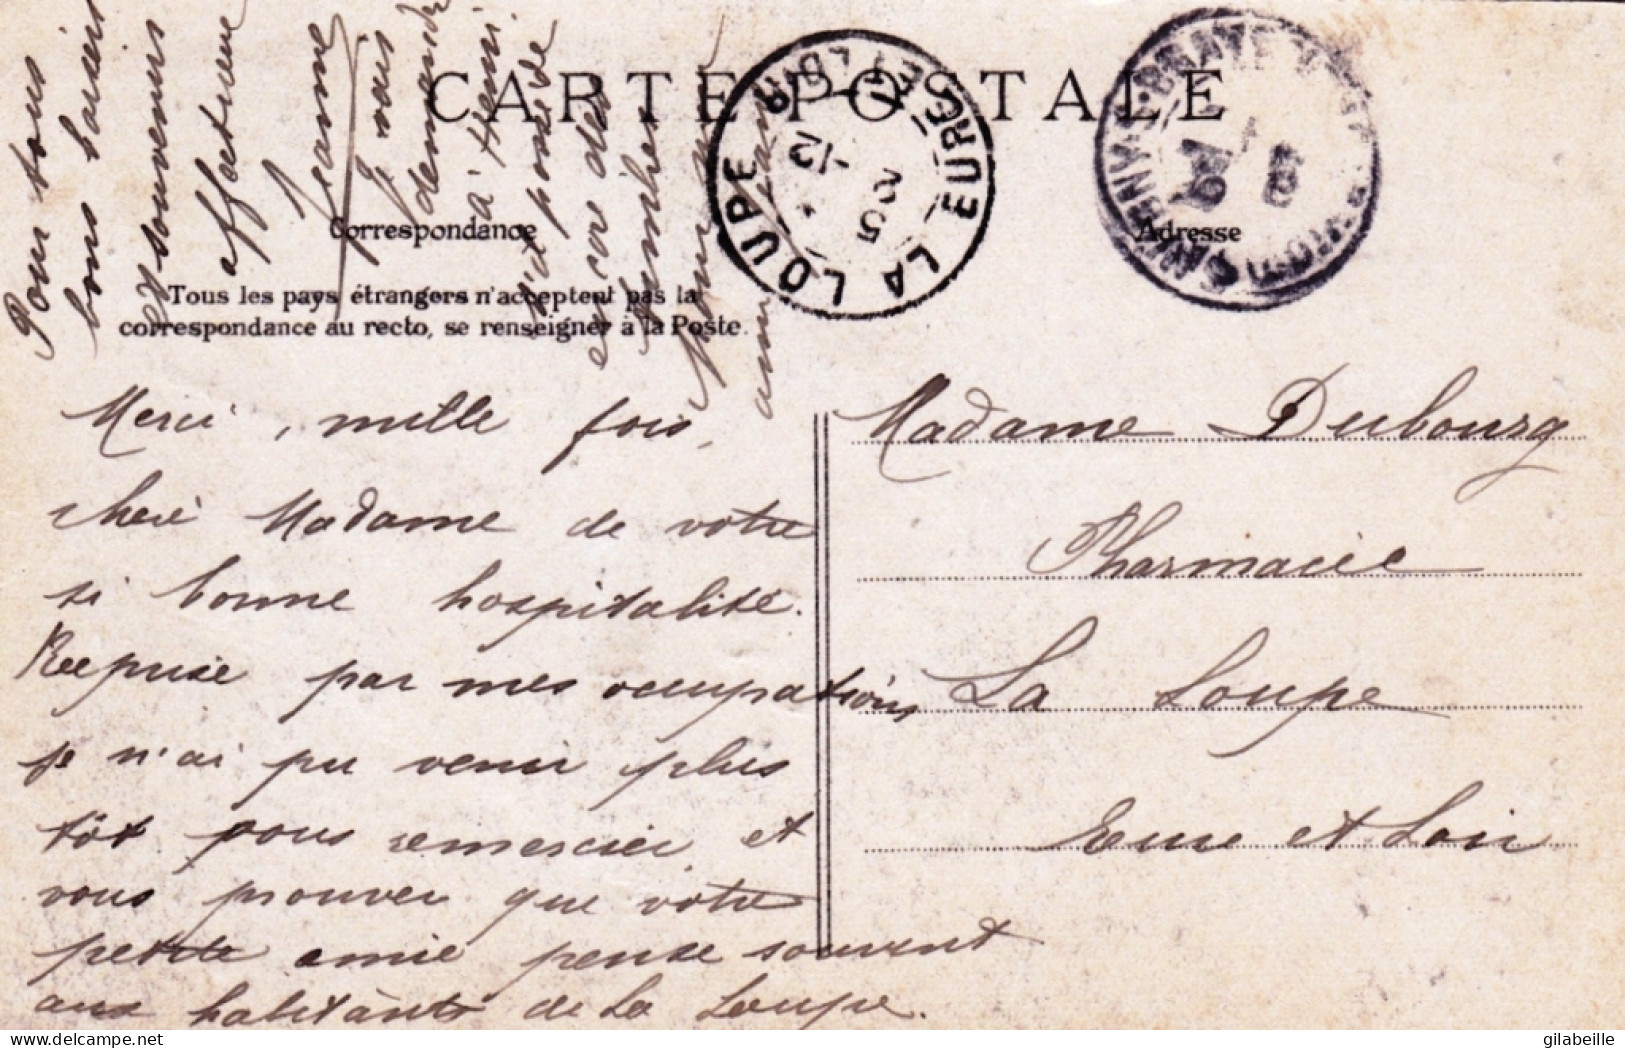 CARTE POSTALE
Correspondance
Adresse
Tous les pays étrangers n'acceptent pas la
correspondance au recto, se renseigner à la Poste.
LA LOUPE
EURE ET LOIR
12
05
Merci, mille fois,
chère Madame de votre
si bonne hospitalité.
Reprise par mes occupations
je n'ai pu venir plus
tôt vous remercier et
vous prouver que votre
petite amie pense souvent
aux habitants de La Loupe.
Pour tous
bons baisers
et souvenirs
affectueux
Jeanne
Je vais
demander
à Henri
s'il possède
encore des
timbres
pour
Madame Dubourg
Pharmacie
La Loupe
Eure et Loir
gilabeille